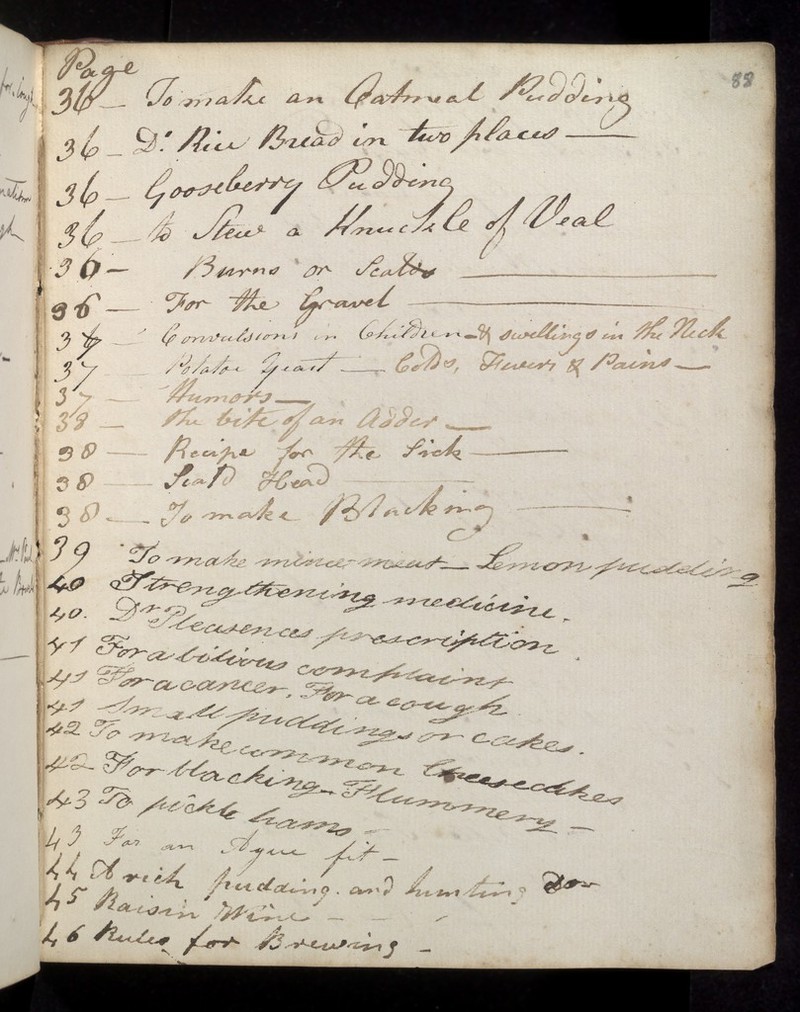 88
Page
36 — To make an Oatmeal Pudding
36 — Do. Rice Bread in two places —
36 — Gooseberry Pudding
36 — to Stew a Knuckle of Veal
36 — Burns or Scalds —
36 — For the Gravel —
36 — Convulsions in Children — & swellings in the Neck
37 — Potatoe Yeast — Colds, Fevers & Pains —
37 — Humors —
38 — the bite of an Adder —
38 — Recipe for the Sick —
38 — Scald Head —
38 — To make Blacking —
39 To make mince meat — Lemon pudding
40 Strengthening medicine.
40. Dr Pleasences prescription.
41 For a bilious complaint
41 For a cancer. For a cough
41 Small puddings or cakes.
42 To make common Cheesecakes
42 For blacking — Flummery —
43 To pickle hams —
43 For an Ague fit —
44 A rich pudding. and hunting
45 Raisin Wine — — —
46 Rules for Brewing —